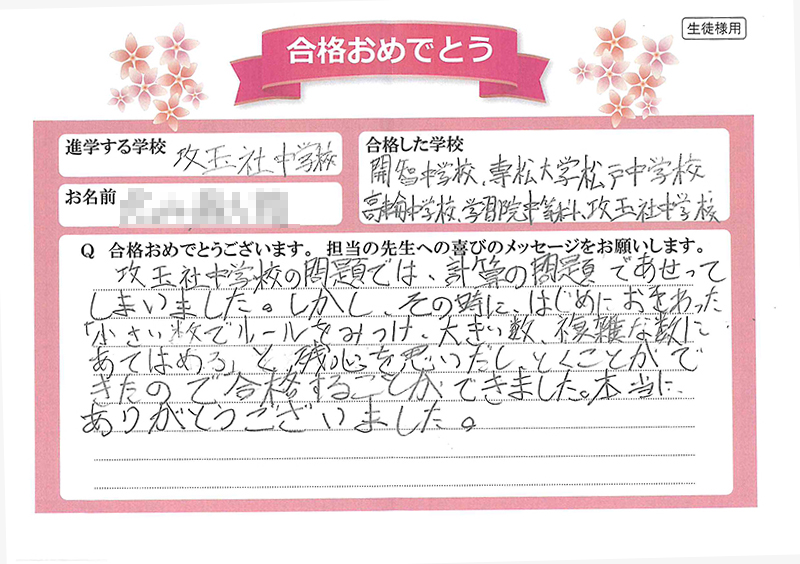 生徒様用
合格おめでとう
進学する学校 攻玉社中学校
お名前
合格した学校
開智中学校、専松大学松戸中学校
高輪中学校、学習院中等科、攻玉社中学校
Q 合格おめでとうございます。担当の先生への喜びのメッセージをお願いします。
攻玉社中学校の問題では、計算の問題であせって
しまいました。しかし、その時に、はじめにおそわった
「小さい数でルールをみつけ、大きい数、複雑な数に
あてはめろ」と、残心を思いだし、とくことがで
きたので合格することができました。本当に
ありがとうございました。